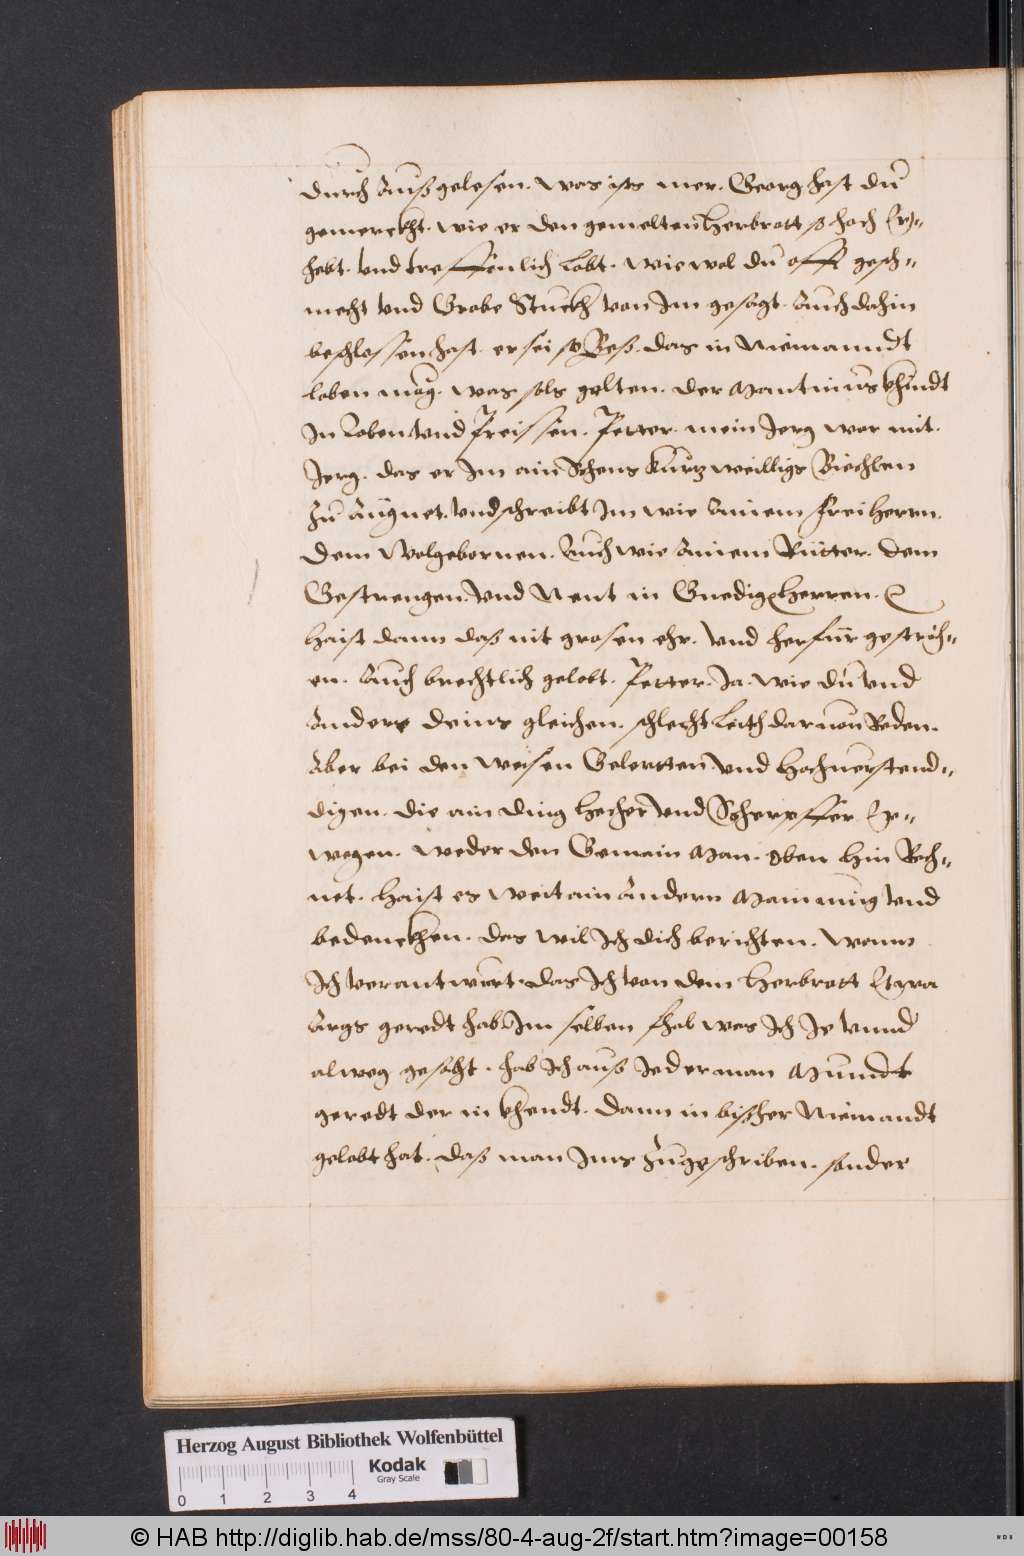 durch außgelesen. was ists mer. Georg hast du
gemerckht. wie er den gemelten Herbrott so hoch Er=
hebt. und treffenlich lobt. wie wol du offt gesch=
mecht und Grobe Stuckh von Im gesagt. Auch dahin
beschlossen hast. er sei so Beß. das in Niemanndt
loben mag. was sols gelten. der Mantuus khundt
In loben und Preissen. Petter. mein Jerg war mit.
Jerg. das er Im ain Schens kurtzweilligs Biechlen
zu Aignet. und schreibt Im wie Ainem freiherrn.
dem Wolgebornen. Auch wie Ainem Ritter. dem
Gestrengen. und Nent in Gnedigen Herren. &
Haist dann daß nit grosen ehr. und herfür gestrich=
en. Auch brechtlich gelobt. Petter. Ja. wie du und
Anders deins gleichen. schlecht Leith darvon Reden.
Aber bei den weisen Gelertten und Hochverstend=
digen. die ain ding Hecher und Scherpffer Er=
wegen. weder den Gemain Man. oben hin Rech=
net. Haist es weit ain Andern Mainung und
bedenckhen. des wil Ich dich berichten. wann
Ich verantwurt. das Ich von dem Herbrott Etwa
Args geredt hab. Im selben fhal was Ich Je unnd
alweg gesacht. hab Ich auß Jederman Mundt
geredt der in khendt. dann in bißher Niemandt
gelobt hat. daß man Ims zugeschriben. sonder
Herzog August Bibliothek Wolfenbüttel
Kodak
Gray Scale
0 1 2 3 4
© HAB http://diglib.hab.de/mss/80-4-aug-2f/start.htm?image=00158